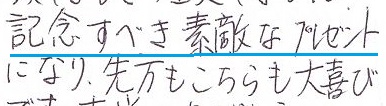 記念すべき素敵なプレゼント
になり、先方もこちらも大喜び